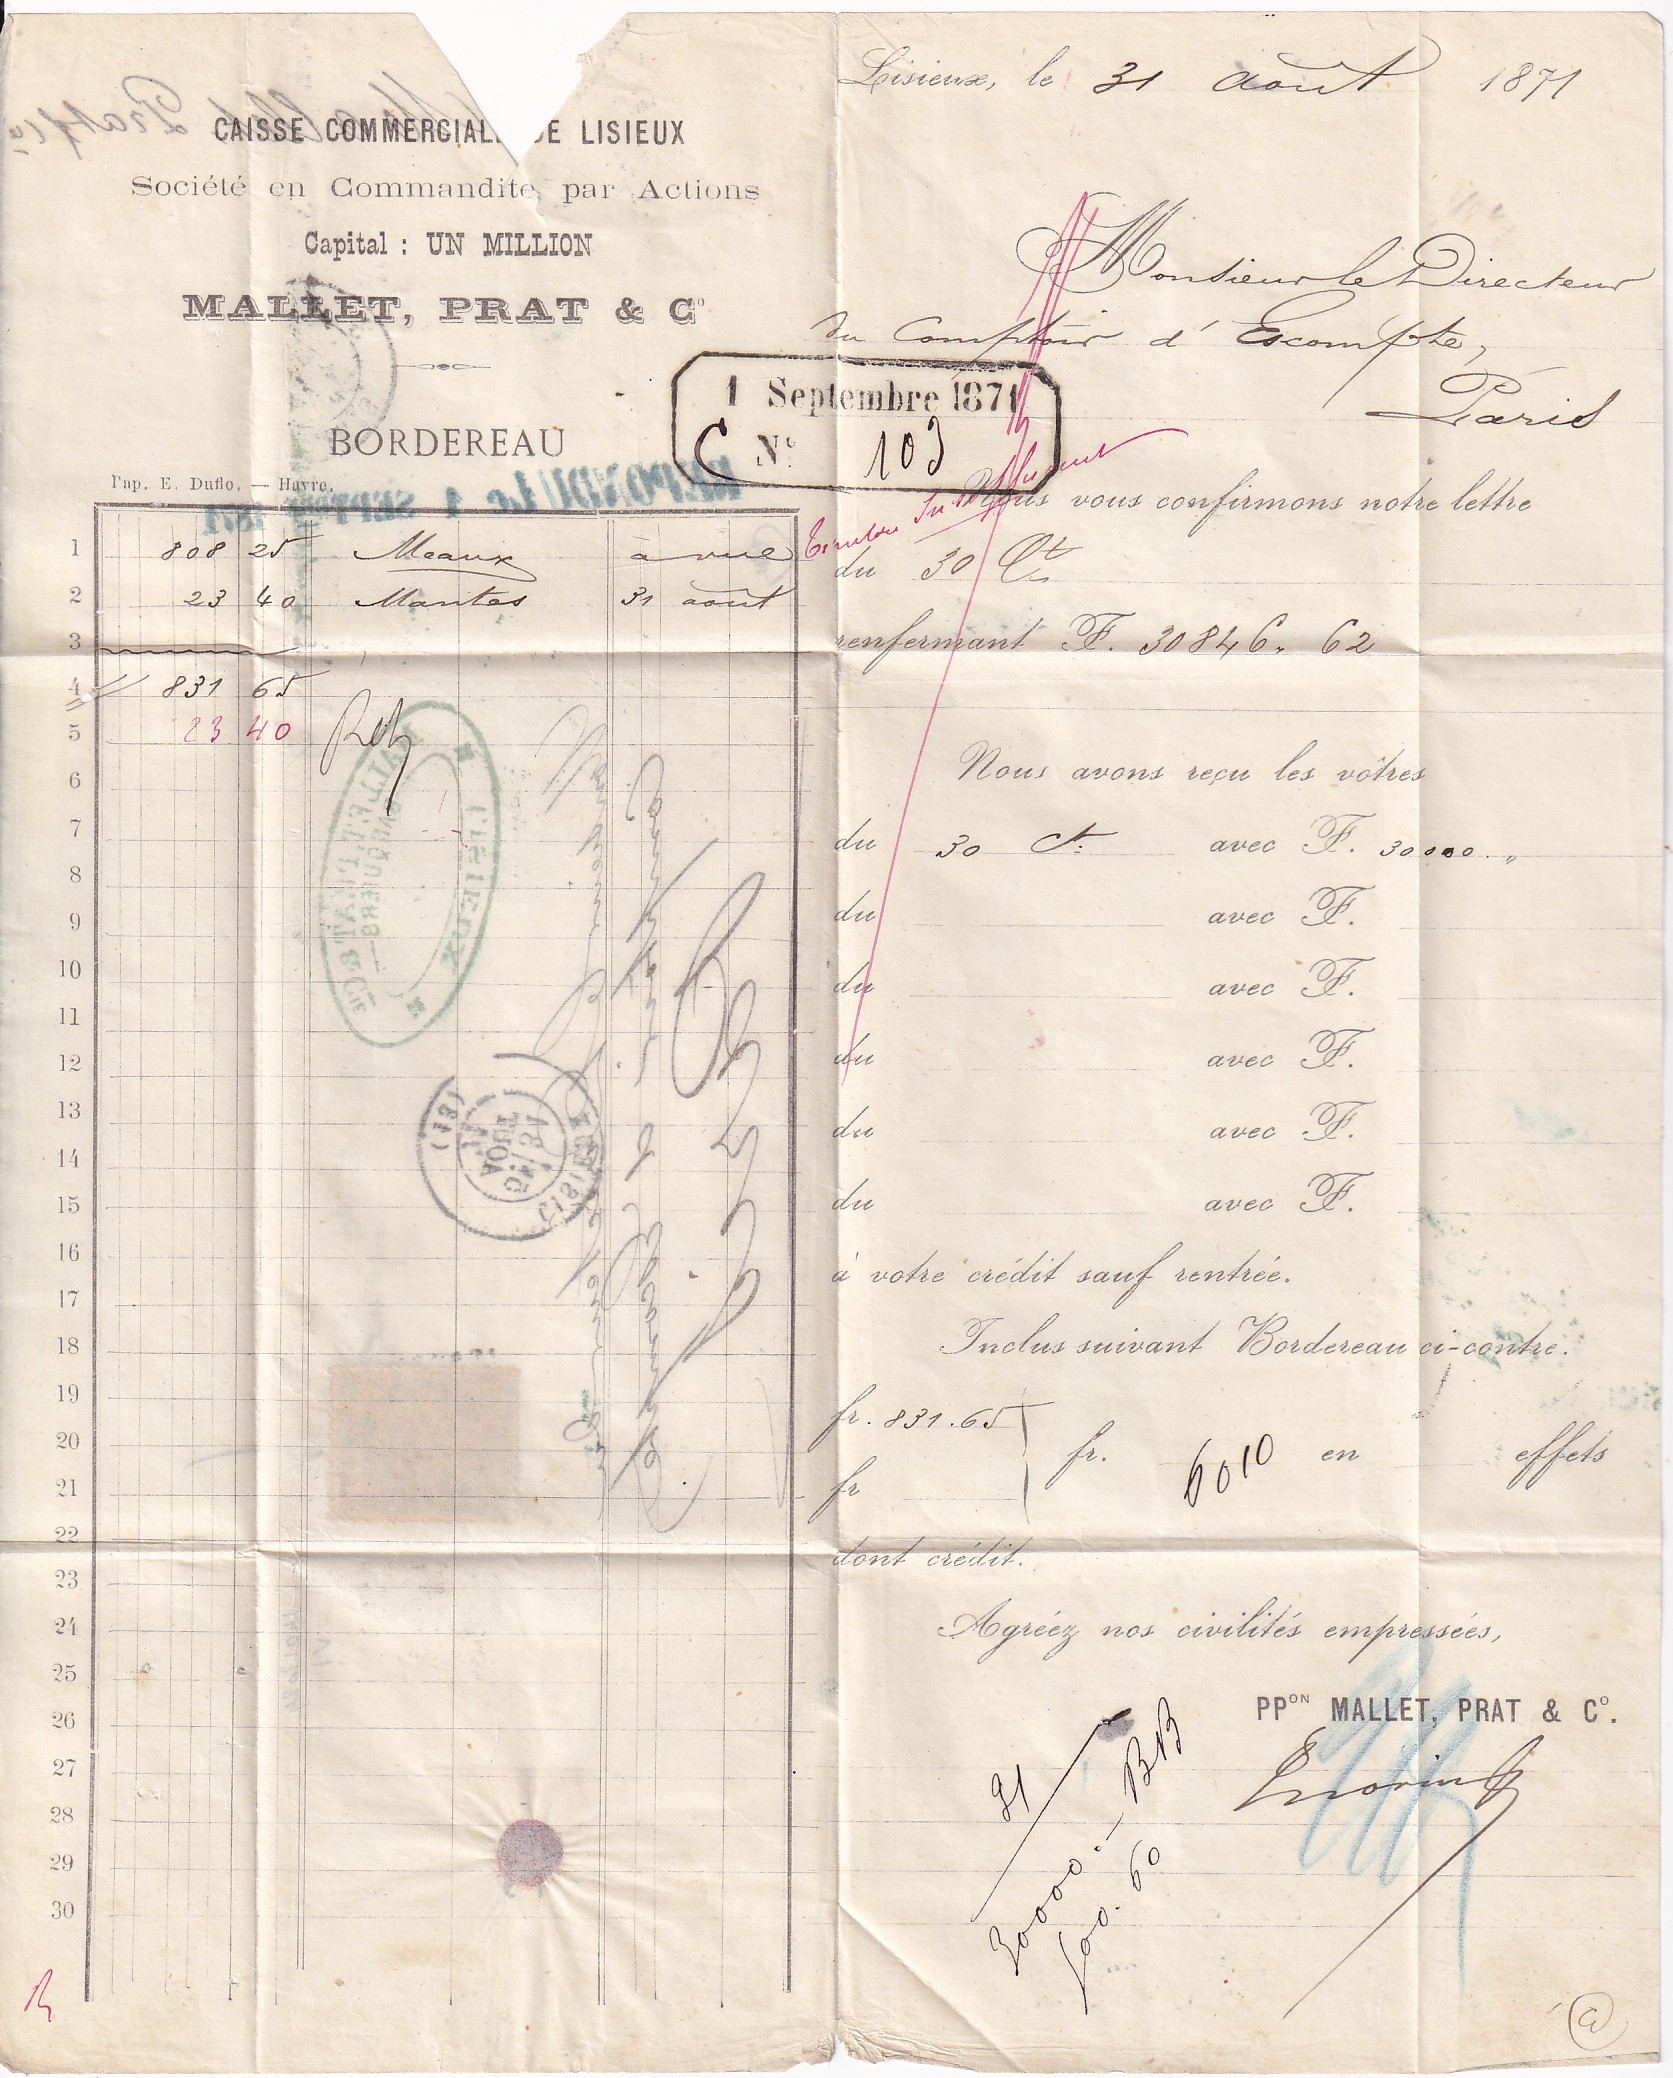 CAISSE COMMERCIALE DE LISIEUX
Société en Commandite par Actions
Capital : UN MILLION
MALLET, PRAT & Cº
BORDEREAU
Pap. E. Duflo, — Havre.
REPONDU Le 1 SEPTBRE 1871
1 808 25 Meaux à vue
2 23 40 Mantes 31 août
3
4 831 65
5 23 40
6
7
8
9
10
11
12
13
14
15
16
17
18
19
20
21
22
23
24
25
26
27
28
29
30
LISIEUX
MALLET, PRAT & Cie
BANQUIERS
Lisieux, le 31 août 1871
Monsieur le Directeur
du Comptoir d'Escompte,
Paris
1 Septembre 1871
C Nº 103
Nous vous confirmons notre lettre
du 30 Ct
renfermant F. 30846. 62
Nous avons reçu les vôtres
du 30 Ct. avec F. 30000. "
du avec F.
du avec F.
du avec F.
du avec F.
du avec F.
à votre crédit sauf rentrée.
Inclus suivant Bordereau ci-contre.
fr. 831.65
fr. 6010 en effets
fr
dont crédit.
Agréez nos civilités empressées,
PPON MALLET, PRAT & Cº.
31
30000.- BB
500. 60